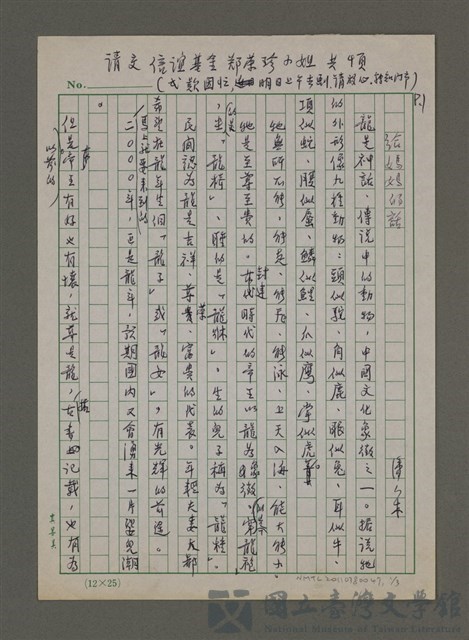 請交 信誼基金 鄭榮珍小姐 共4項
No.
P.1
張媽媽的話
龍是神話、傳說中的動物，中國文化象徵之一。據說牠
的外形像九種動物：頭似駝、角似鹿、眼似兔、耳似牛、
項似蛇、腹似蜃、鱗似鯉、爪似鷹、掌似虎。
牠無所不能，能走、能飛、能泳、上天入海，能大能小
牠是至尊至貴的。封建時代的帝王以龍為象徵，穿龍袍
坐「龍椅」、睡的是「龍牀」，生的兒子稱為「龍種」
民間認為龍是吉祥、尊榮、富貴的代表。年輕夫妻大都
希望在龍年生個「龍子」或「龍女」，有光輝的前途。
馬上就要來到的
二○○○年，正是龍年，預期國內又會湧來一片嬰兒潮
。
但是帝王有好也有壞，就算是龍，古書記載，也有為
以前的
(12×25)
NMTL20110780047, 1/3
國立臺灣文學館
National Museum of Taiwan Literature